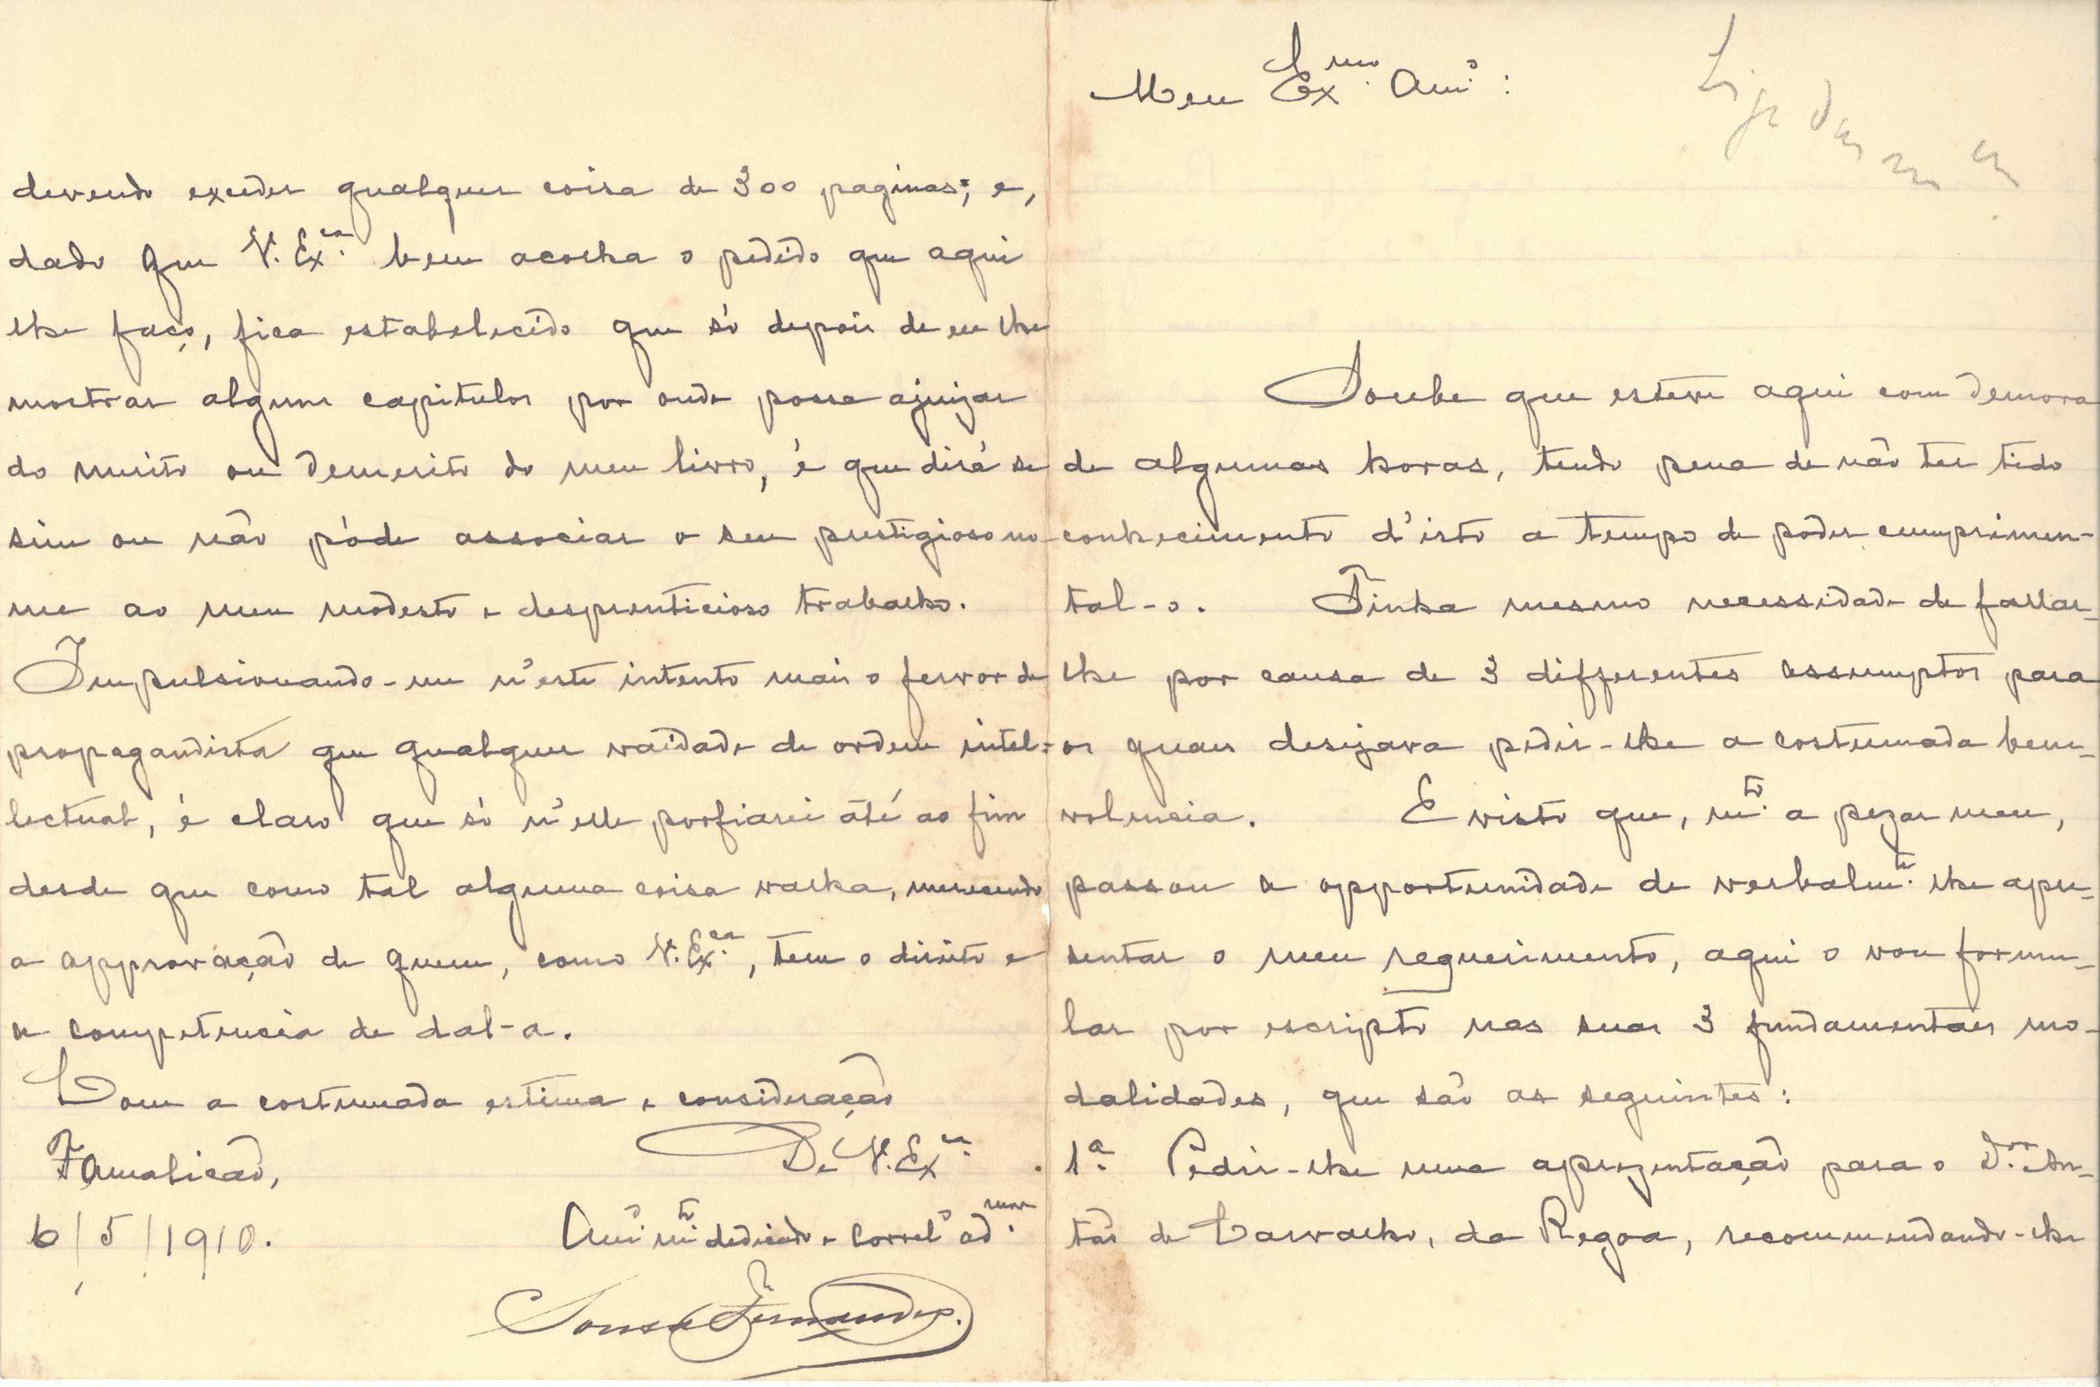 Meu Ex.mo Am.o:
Soube que esteve aqui com demora
de algumas horas, tendo pena de não ter tido
conhecimento d'isto a tempo de poder cumprimen-
tal-o. Tinha mesmo necessidade de fallar-
lhe por causa de 3 differentes assumptos para
os quaes desejava pedir-lhe a costumada bene-
volencia. E visto que, m.to a pezar meu,
passou a opportunidade de verbalm.te lhe apre-
sentar o meu requerimento, aqui o vou formu-
lar por escripto nas suas 3 fundamentaes mo-
dalidades, que são as seguintes:
1.ª Pedir-lhe uma aprezentação para o D.or An-
tão de Carvalho, da Regoa, recommendando-lhe
devendo exceder qualquer coisa de 300 paginas; e,
dado que V. Ex.cia bem acolha o pedido que aqui
lhe faço, fica estabelecido que só depois de eu lhe
mostrar alguns capitulos por onde possa ajuizar
do merito ou demerito do meu livro, é que dirá se
sim ou não póde associar o seu prestigioso no-
me ao meu modesto e despretencioso trabalho.
Impulsionando-me n'este intento mais o fervor de
propagandista que qualquer vaidade de ordem intel-
lectual, é claro que só n'elle porfiarei até ao fim
desde que como tal alguma coisa valha, merecendo
a approvação de quem, como V. Ex.cia, tem o direito e
a competencia de dal-a.
Com a costumada estima e consideração
De V. Ex.cia
Famalicão,
6/5/1910.
Am.o m.to dedicado e correl.o ad.mor
Sousa Fernandes.